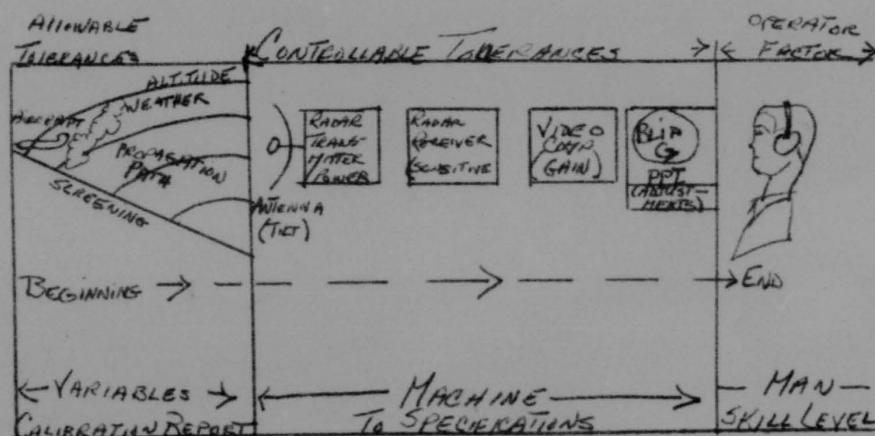 ALLOWABLE
TOLERANCES
CONTROLLABLE TOLERANCES
OPERATOR
FACTOR
ALTITUDE
WEATHER
AIRCRAFT
PROPAGATION
PATH
SCREENING
ANTENNA
(TILT)
RADAR
TRANS-
MITTER
POWER
RADAR
RECEIVER
(SENSITIVE)
VIDEO
COMP
GAIN)
BLIP
PPI
(ADJUST-
MENTS)
BEGINNING
END
VARIABLES
CALIBRATION REPORT
MACHINE
TO SPECIFICATIONS
MAN
SKILL LEVEL